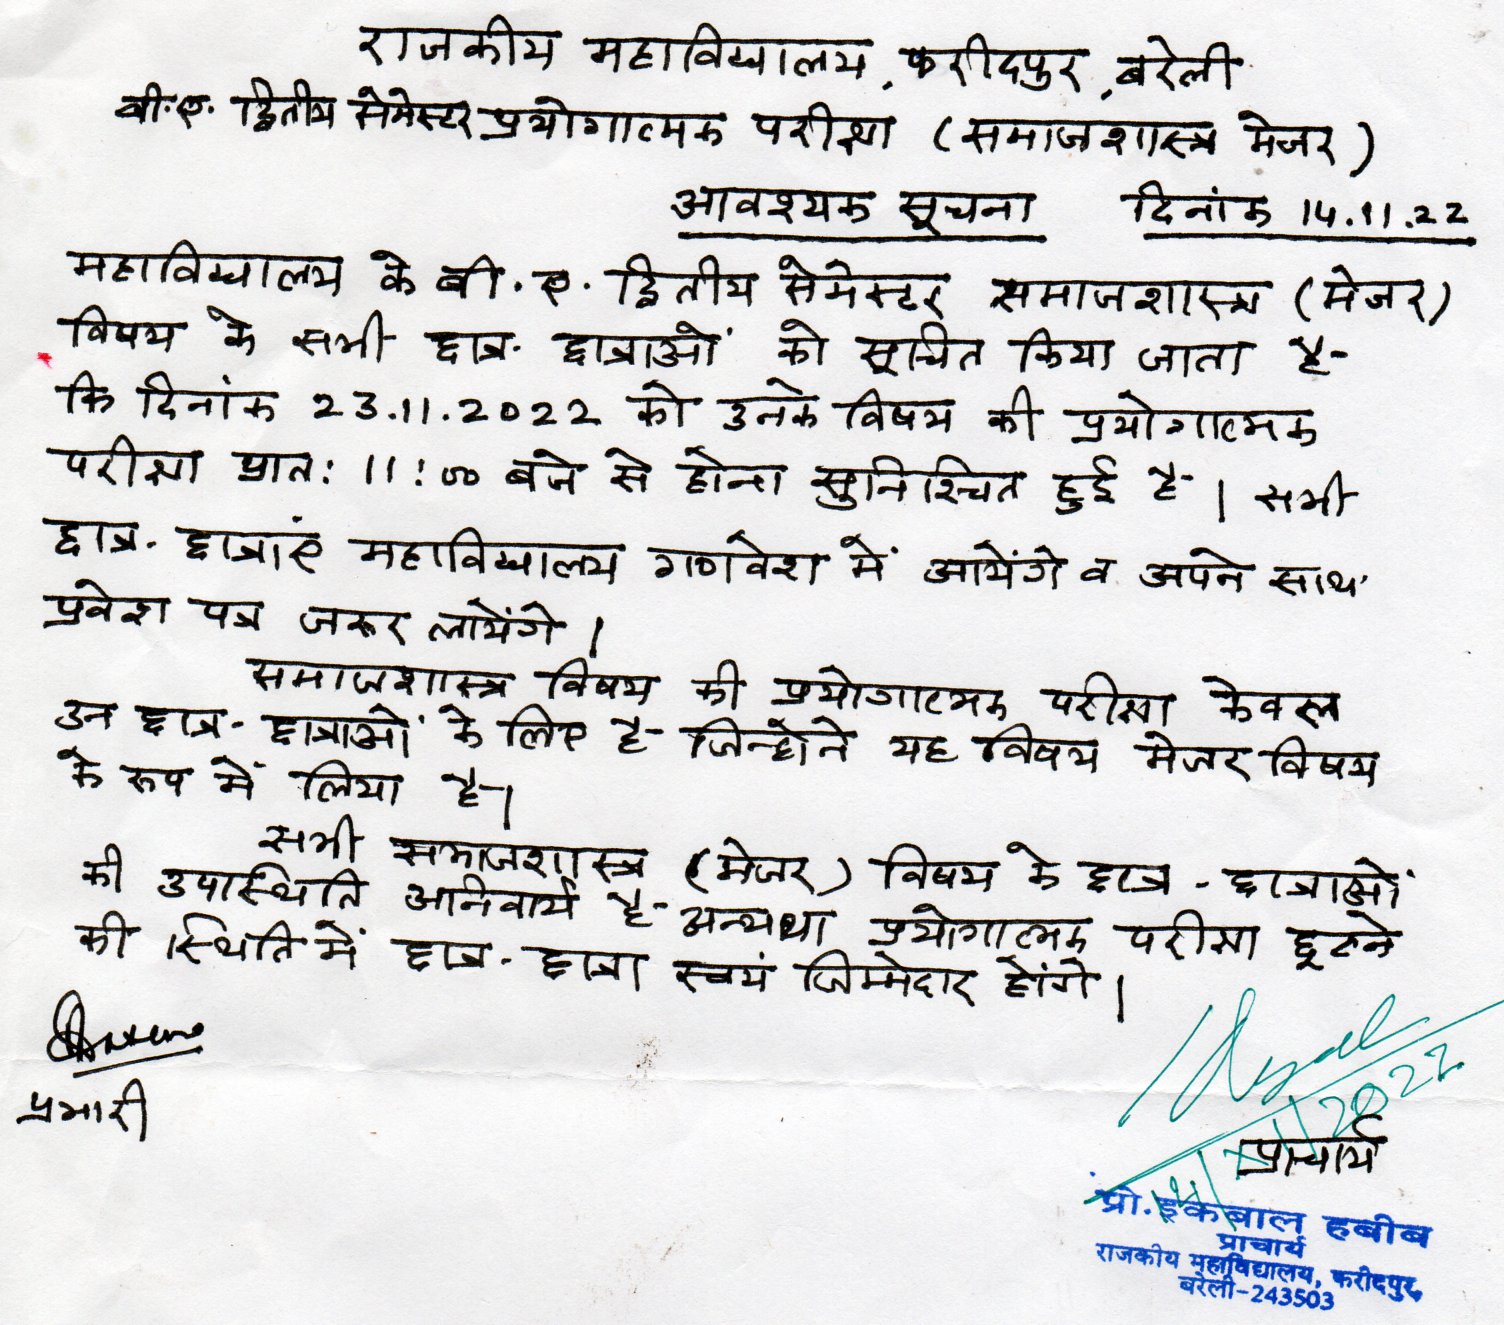 राजकीय महाविद्यालय, फरीदपुर, बरेली
बी.ए. द्वितीय सेमेस्टर प्रयोगात्मक परीक्षा (समाजशास्त्र मेजर)
आवश्यक सूचना दिनांक 14.11.22
महाविद्यालय के बी.ए. द्वितीय सेमेस्टर समाजशास्त्र (मेजर)
विषय के सभी छात्र-छात्राओं को सूचित किया जाता है-
कि दिनांक 23.11.2022 को उनके विषय की प्रयोगात्मक
परीक्षा प्रात: 11:00 बजे से होना सुनिश्चित हुई है। सभी
छात्र-छात्राएं महाविद्यालय गणवेश में आयेंगे व अपने साथ
प्रवेश पत्र जरूर लायेंगे।
समाजशास्त्र विषय की प्रयोगात्मक परीक्षा केवल
उन छात्र-छात्राओं के लिए है जिन्होने यह विषय मेजर विषय
के रूप में लिया है।
सभी समाजशास्त्र (मेजर) विषय के छात्र-छात्राओं
की उपास्थिति अनिवार्य है- अन्यथा प्रयोगात्मक परीक्षा छूटने
की स्थिति में छात्र-छात्रा स्वयं जिम्मेदार होंगे।
प्रभारी
2022
प्राचार्य
प्रो. इकबाल हबीब
प्राचार्य
राजकीय महाविद्यालय, फरीदपुर,
बरेली-243503